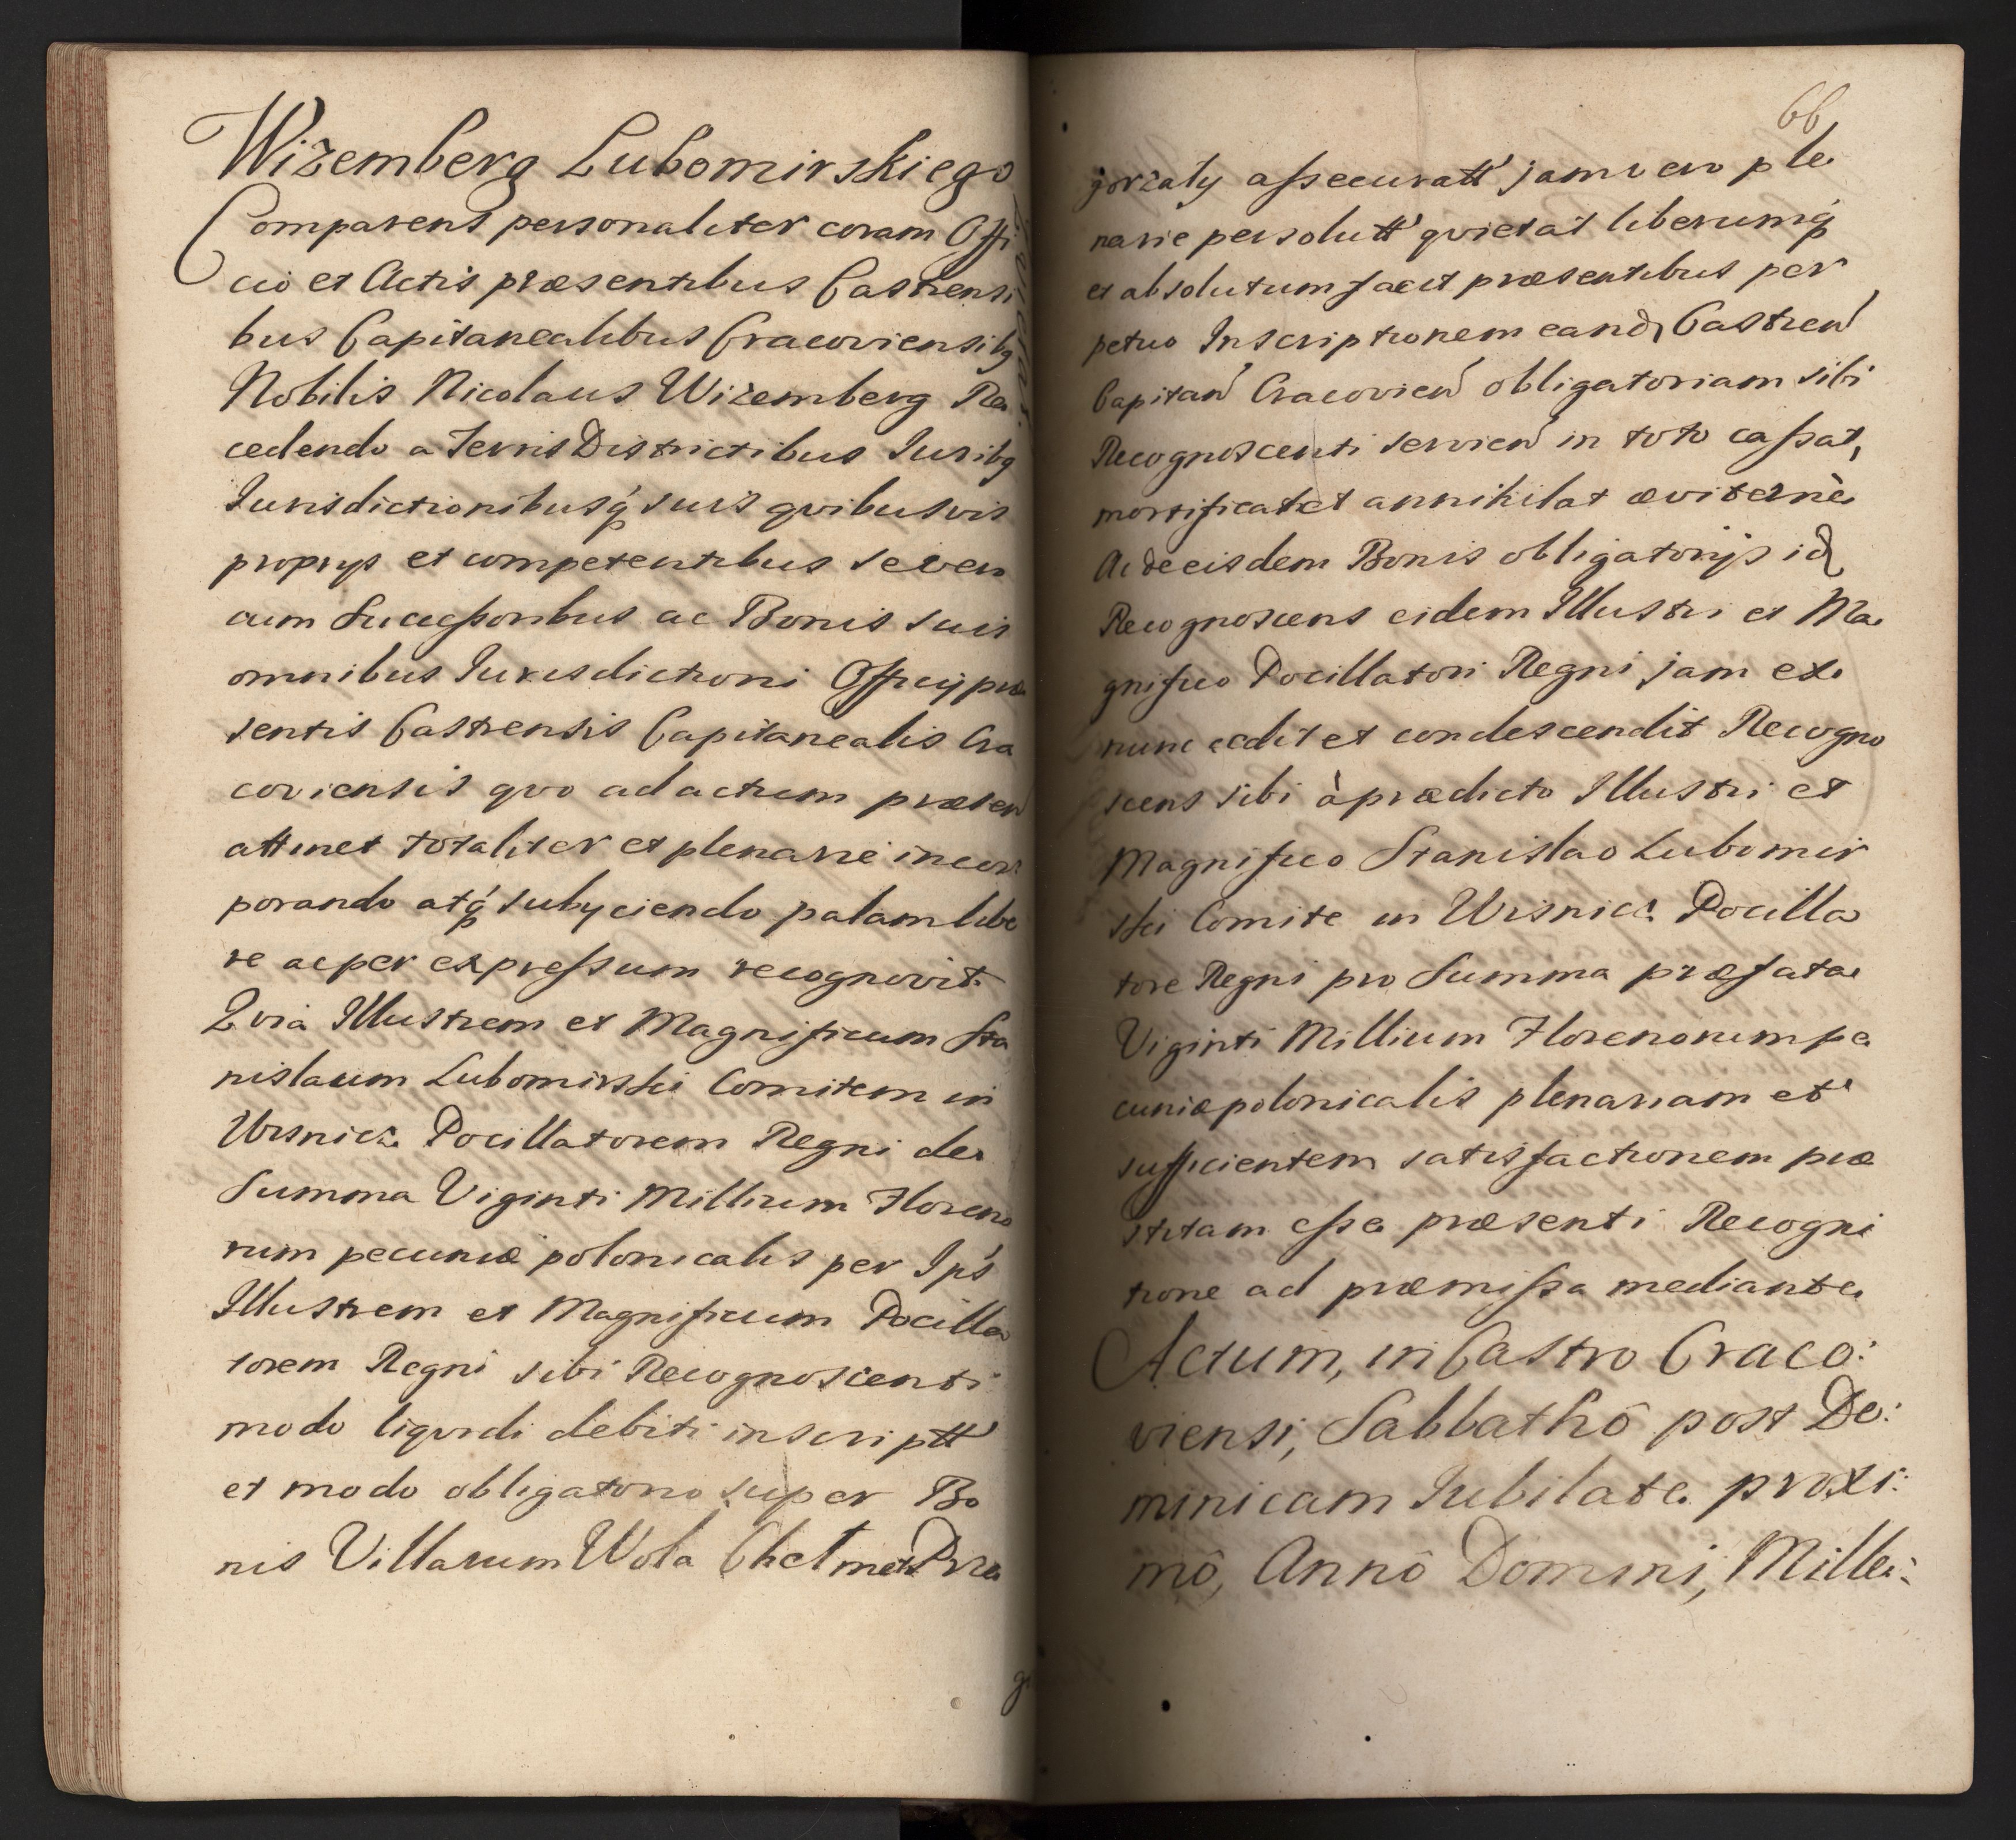 Wizemberg Lubomirskiego
Comparens personaliter coram Offi
cio et Actis præsentibus Castrensi
bus Capitanealibus Cracoviensibꝫ
Nobilis Nicolaus Wizemberg Re
cedendo a Terris Districtibus Juribꝫ
Jurisdictionibusq́ suis qvibusvis
proprijs et competentibus seven
cum Sucessoribus ac Bonis suis
omnibus Jurisdictioni Officij præ
sentis Castrensis Capitanealis Cra
coviensis qvo ad actum præsen
attinet totaliter et plenarie incor
porando atq́ subyciendo palam libe
re ac per expressum recognovit
Qvia Illustrem et Magnificum Sta
nislaum Lubomirski Comitem in
Wisnicz Pocillatorem Regni de
Summa Viginti Millium Floreno
rum pecuniæ polonicalis per Ips
Illustrem et Magnificum Pocilla
torem Regni sibi Recognoscenti
modo liqvidi debiti inscriptt
et modo obligatorio super Bo
nis Villarum Wola Chelmet Prze
66
gorzaly assecuratt jam vero ple
narie persolutt qvietat liberumq́
et absolutum facit præsentibus per
petuo Inscriptionem eand Castren
Capitan Cracovien obligatoriam sibi
Recognoscenti servien in toto cassat,
mortificat et annihilat æviternè
Ac de eisdem Bonis obligatorijs id
Recognoscens eidem Illustri et Ma
gnifico Pocillatori Regni jam ex
nunc cedit et condescendit Recogno
scens sibi à prædicto Illustri et
Magnifico Stanislao Lubomir
ski Comite in Wisnicz Pocilla
tore Regni pro Summa præfata
Viginti Millium Florenorum pe
cuniæ polonicalis plenariam et
sufficientem satisfactionem præ
stitam esse præsenti Recogni
tione ad præmissa mediante
Actum, in Castro Craco:
viensi, Sabbathô post Do:
minicam Jubilate proxi:
mô, Annô Domini, Mille: